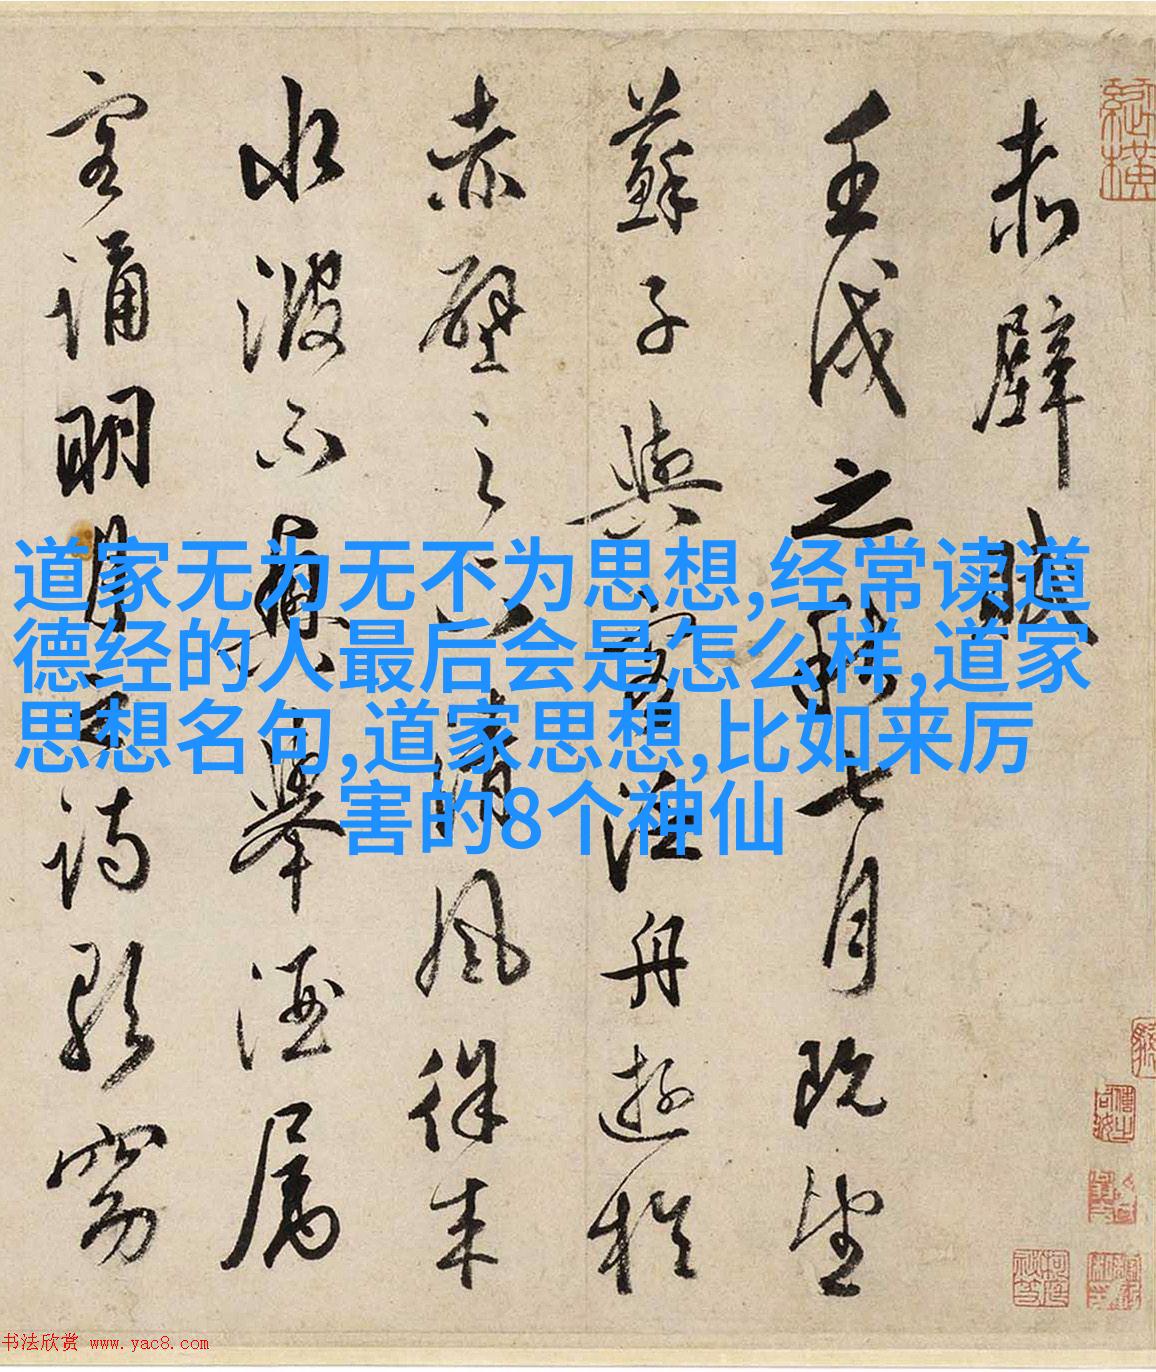 赤壁賦
壬戌之秋七月既望
蘇子與客泛舟遊於
赤壁之下清風徐来
水波不興舉酒属
客誦明月之詩歌窈
道家无为无不为思想,经常读道
德经的人最后会是怎么样,道家
思想名句,道家思想,比如来厉
害的8个神仙
书法欣赏 www.yac8.com